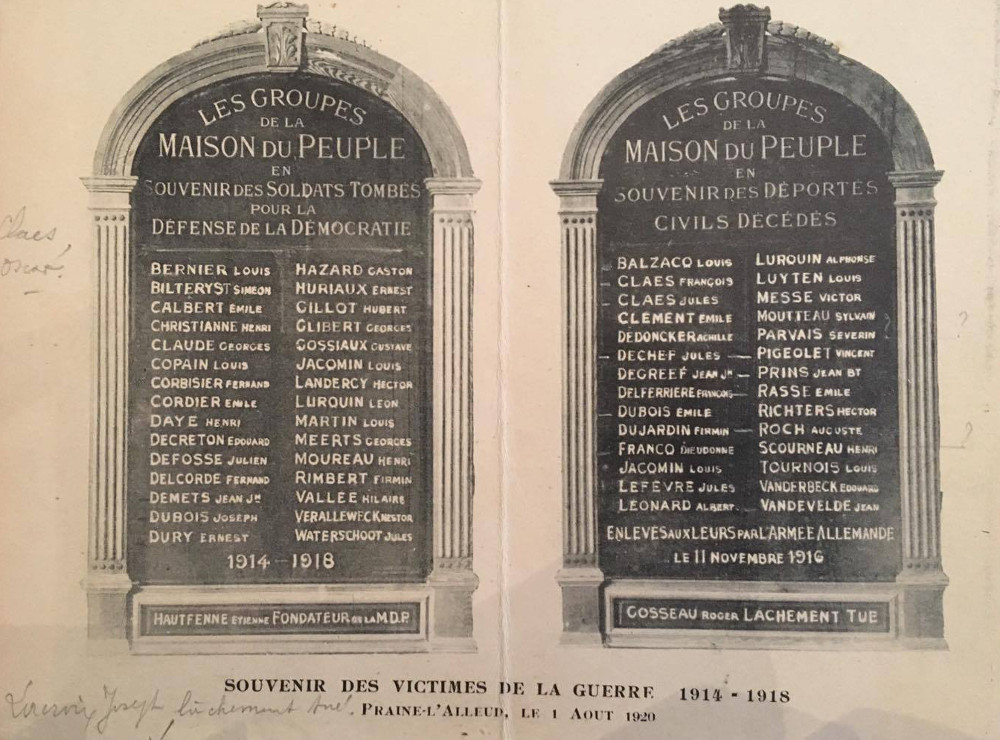 LES GROUPES
DE LA
MAISON DU PEUPLE
EN
SOUVENIR DES SOLDATS TOMBÉS
POUR LA
DÉFENSE DE LA DÉMOCRATIE
BERNIER LOUIS
BILTERYST SIMEON
CALBERT ÉMILE
CHRISTIANNE HENRI
CLAUDE GEORGES
COPAIN LOUIS
CORBISIER FERNAND
CORDIER EMILE
DAYE HENRI
DECRETON EDOUARD
DEFOSSE JULIEN
DELCORDE FERNAND
DEMETS JEAN JH
DUBOIS JOSEPH
DURY ERNEST
HAZARD GASTON
HURIAUX ERNEST
GILLOT HUBERT
GLIBERT GEORGES
GOSSIAUX GUSTAVE
JACOMIN LOUIS
LANDERCY HECTOR
LURQUIN LEON
MARTIN LOUIS
MEERTS GEORGES
MOUREAU HENRI
RIMBERT FIRMIN
VALLÉE HILAIRE
VERALLEWECK NESTOR
WATERSCHOOT JULES
1914 - 1918
HAUTFENNE ETIENNE FONDATEUR DE LA M.D.P.
LES GROUPES
DE LA
MAISON DU PEUPLE
EN
SOUVENIR DES DÉPORTÉS
CIVILS DÉCÉDÉS
BALZACQ LOUIS
CLAES FRANÇOIS
CLAES JULES
CLÉMENT ÉMILE
DEDONCKER ACHILLE
DECHEF JULES
DEGREEF JEAN JH
DELFERRIERE FRANÇOIS
DUBOIS ÉMILE
DUJARDIN FIRMIN
FRANCQ DIEUDONNE
JACOMIN LOUIS
LEFÈVRE JULES
LÉONARD ALBERT
LURQUIN ALPHONSE
LUYTEN LOUIS
MESSE VICTOR
MOUTTEAU SYLVAIN
PARVAIS SÉVERIN
PIGEOLET VINCENT
PRINS JEAN BT
RASSE EMILE
RICHTERS HECTOR
ROCH AUGUSTE
SCOURNEAU HENRI
TOURNOIS LOUIS
VANDERBECK EDOUARD
VANDEVELDE JEAN
ENLEVÉS AUX LEURS PAR L'ARMÉE ALLEMANDE
LE 11 NOVEMBRE 1916
GOSSEAU ROGER LACHEMENT TUÉ
Claes,
Oscar.
?
?
?
SOUVENIR DES VICTIMES DE LA GUERRE 1914 - 1918
PRAINE-L'ALLEUD, LE 1 AOUT 1920
Joseph lâchement tué.